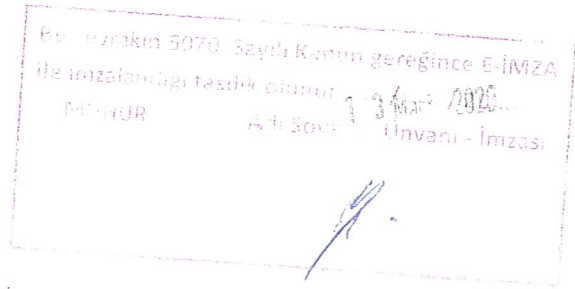 Bu evrakın 5070 Sayılı Kanun gereğince E-İMZA
ile imzalandığı tasdik olunur. 13 /2020...
MÜHÜR Adı Soyadı Ünvanı - İmzası